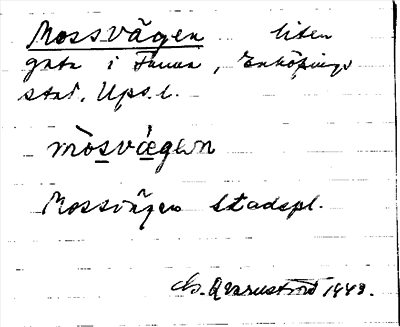 Mossvägen liten
gata i Fanna, Enköpings
stad, Ups.l.
mòsvǽgen
Mossvägen Stadspl.
Qvarnström 1943.